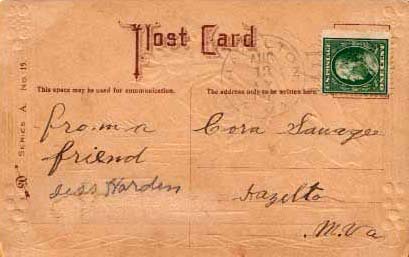 Post Card
HAZELTON
AUG
13
This space may be used for communication.
The address only to be written here.
SERIES A No. 15.
from a
friend
Jess Harden
Cora Savage
Hazelto
W. Va